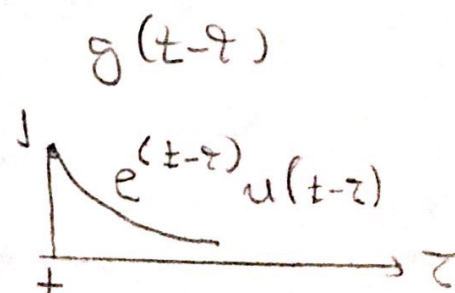 g(t-τ)
1
e^(t-τ) u(t-τ)
t
τ